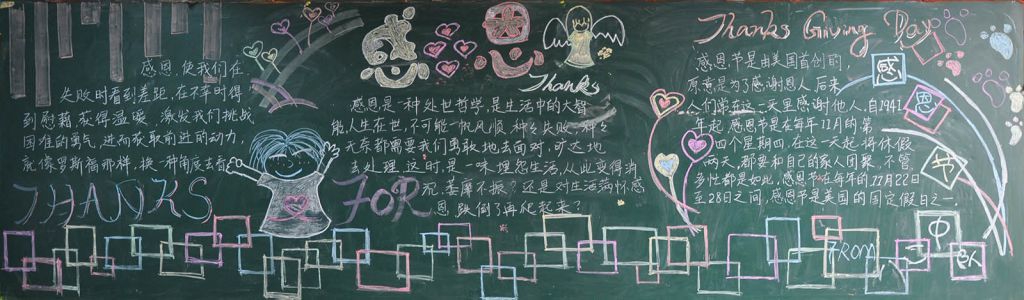 感恩,使我们在
失败时看到差距,在不幸时得
到慰藉获得温暖,激发我们挑战
困难的勇气,进而获取前进的动力,
就像罗斯福那样,换一种角度去看
THANKS
感恩
Thanks
感恩是一种处世哲学,是生活中的大智
能人生在世,不可能一帆风顺,种种失败、种种
无奈都需要我们勇敢地去面对,旷达地
去处理.这时,是一味埋怨生活,从此变得消
沉、萎靡不振?还是对生活满怀感
恩,跌倒了再爬起来?
FOR
Thanks Giving Day
感恩节是由美国首创的,
原意是为了感谢恩人,后来
人们常在这一天里感谢他人.自1941
年起,感恩节是在每年11月的第
四个星期四,在这一天起将休假
两天,都要和自己的家人团聚,不管
多忙都是如此,感恩节在每年的11月22日
至28日之间,感恩节是美国的固定假日之一.
感
恩
节
FROM
心
中